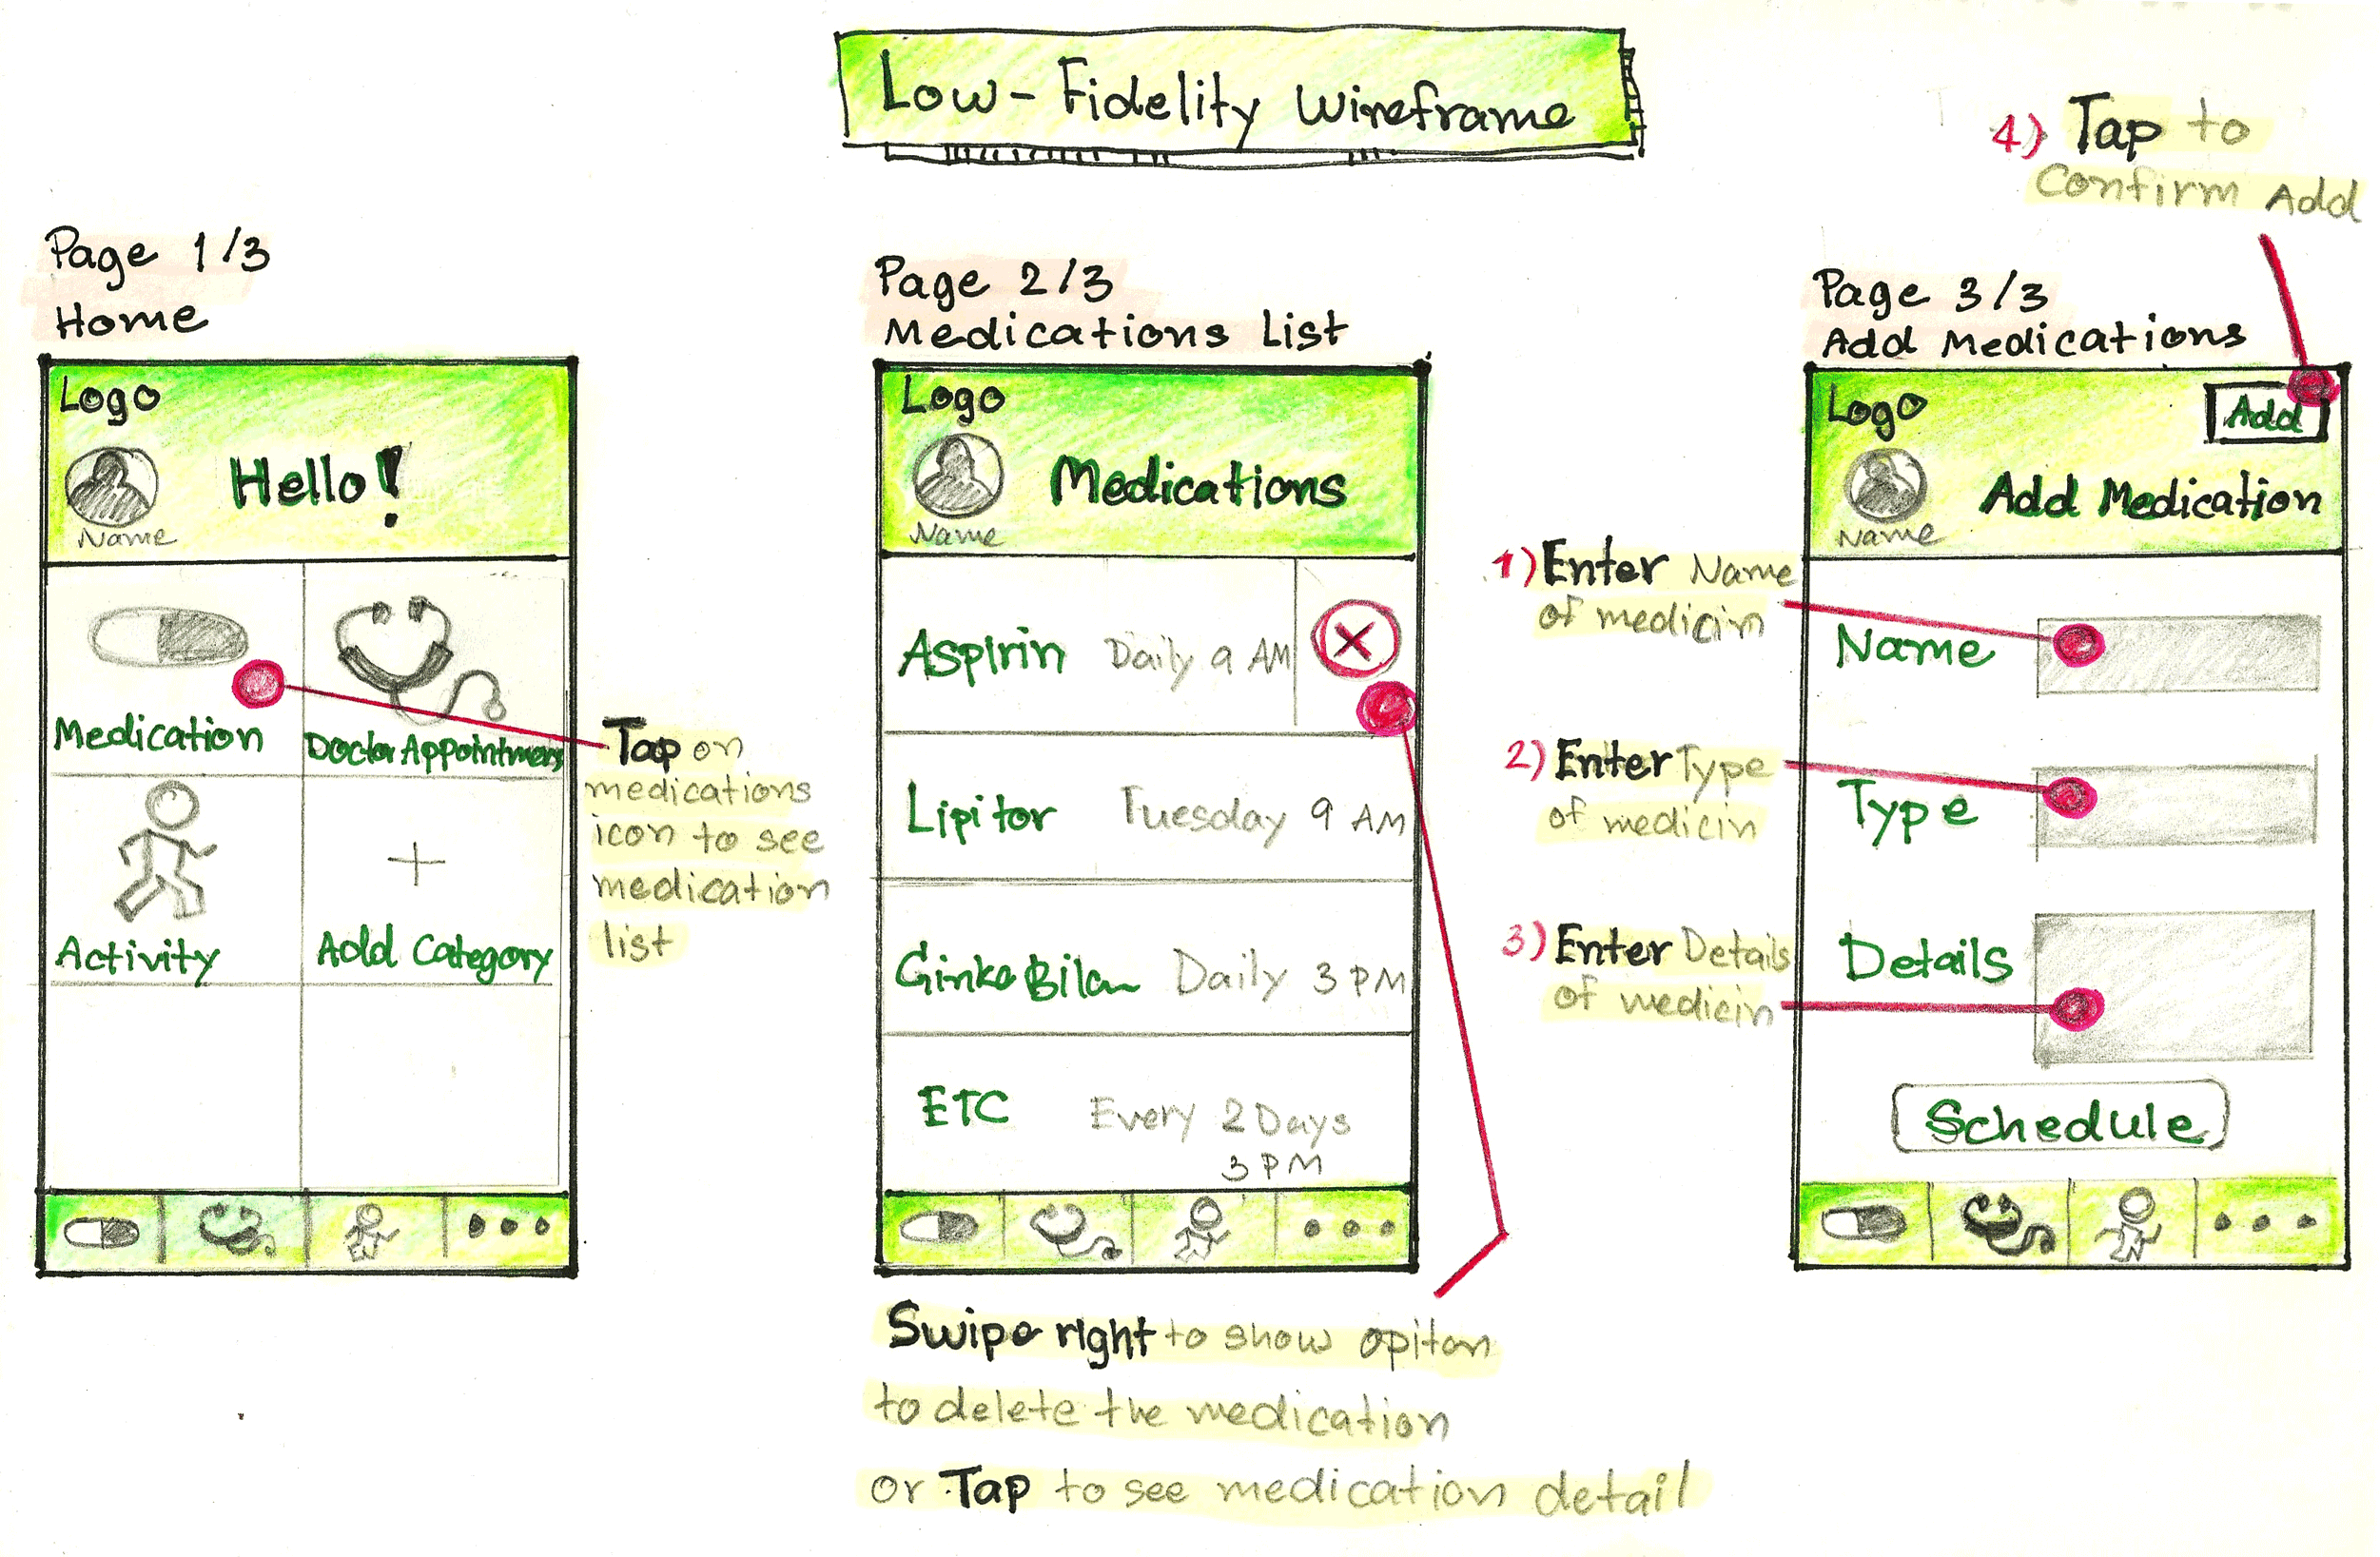 Low-Fidelity Wireframe
Page 1/3
Home
Logo
Hello!
Name
Medication
Doctor Appointment
Activity
Add Category
Tap on
medications
icon to see
medication
list
Page 2/3
Medications List
Logo
Medications
Name
Aspirin Daily 9 AM
Lipitor Tuesday 9 AM
Daily 3 PM
ETC Every 2 Days
3 PM
Swipe right to show opiton
to delete the medication
or Tap to see medication detail
4) Tap to
Confirm Add
Page 3/3
Add Medications
Logo
Add
Add Medication
Name
1) Enter Name
of medicin
Name
2) Enter Type
of medicin
Type
3) Enter Details
of medicin
Details
Schedule